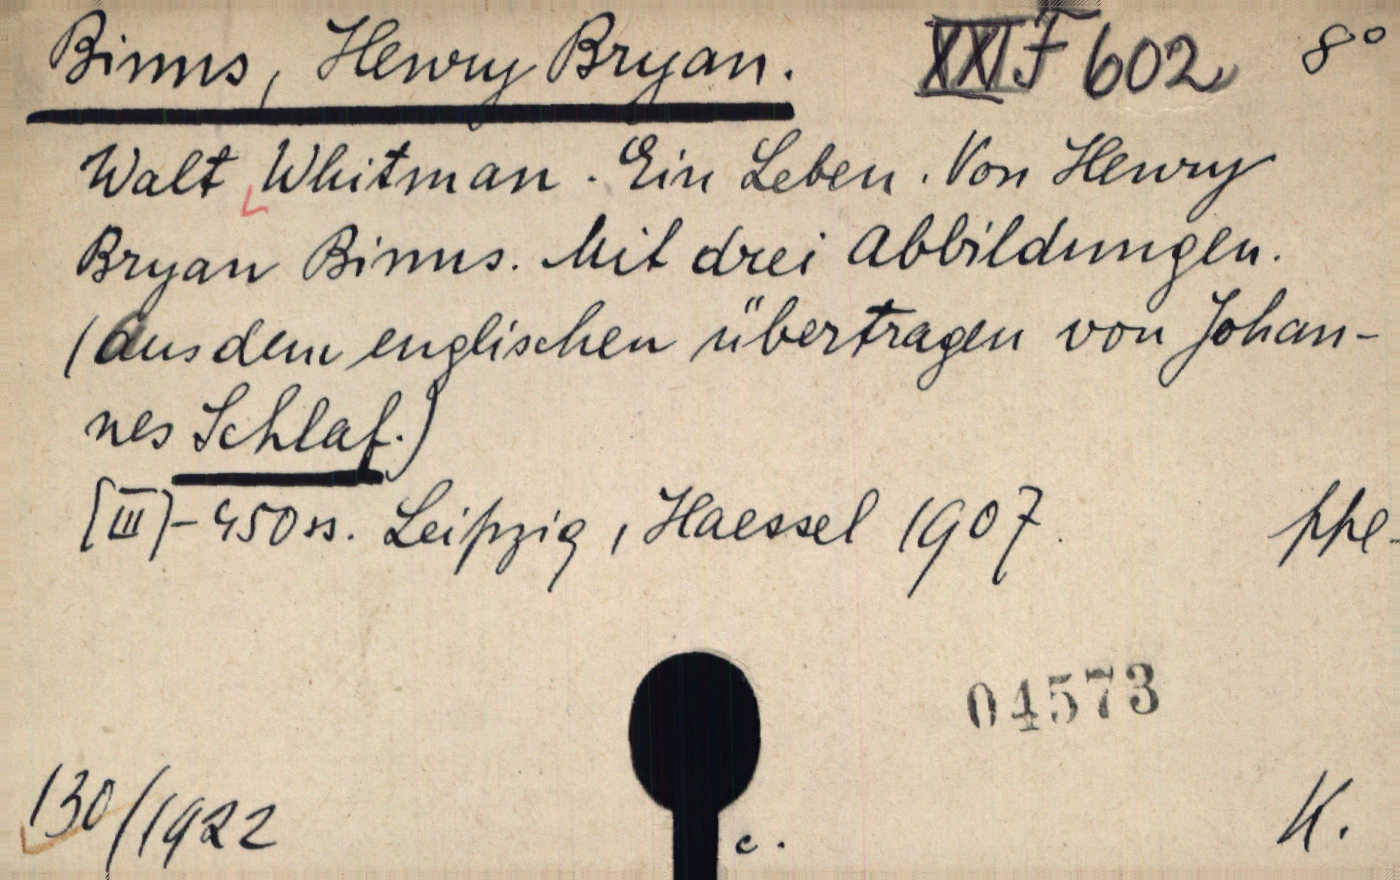 Binns, Henry Bryan. XXI F 602 8°
Walt Whitman. Ein Leben. Von Henry
Bryan Binns. Mit drei Abbildungen.
(Aus dem englischen übertragen von Johan-
nes Schlaf.)
[III]-450 ss. Leipzig, Haessel 1907. ppe-
04573
130/1922 c. K.